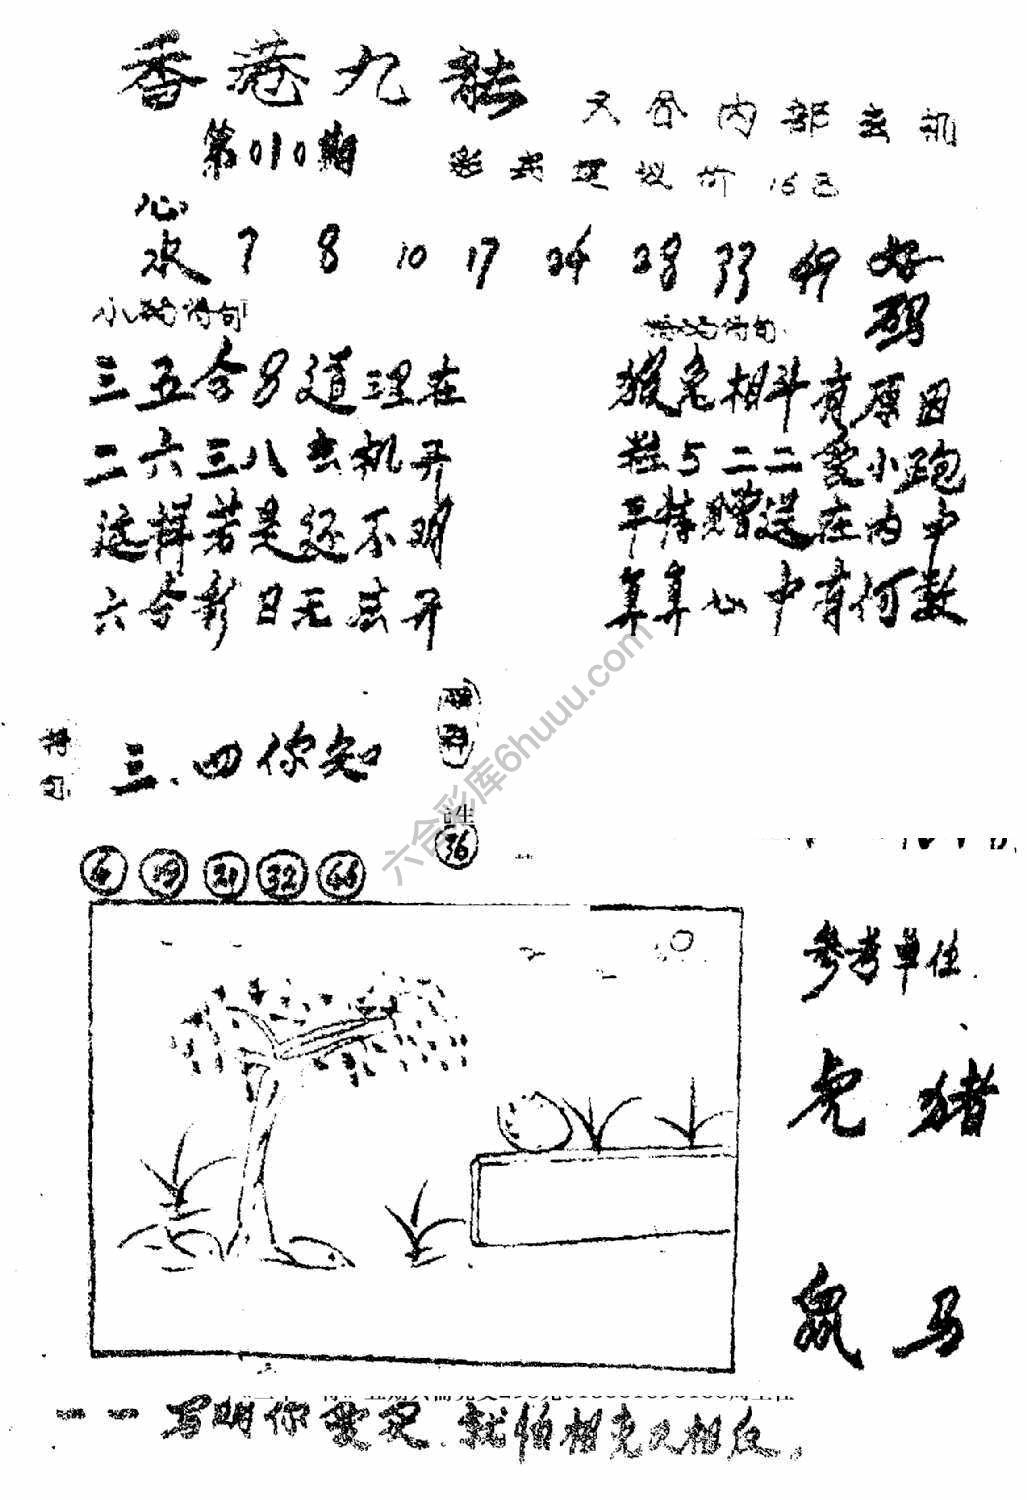 香港九龙
第010期
内部玄机
价 16元
心水 7 8 10 17 24 28 33 49 好码
诗句
诗句
三五今8道理在
二六三八玄机开
这样若是还不明
六合彩日无法开
猴兔相斗有原因
5二二爱小跑
平特赠送在内中
算算心中有何数
特
三.四你知
生
36
4 19 21 32 46
六合彩库6huuu.com
参考单位
虎 猪
鼠 马
一一写明你要定.就怕相克又相反.